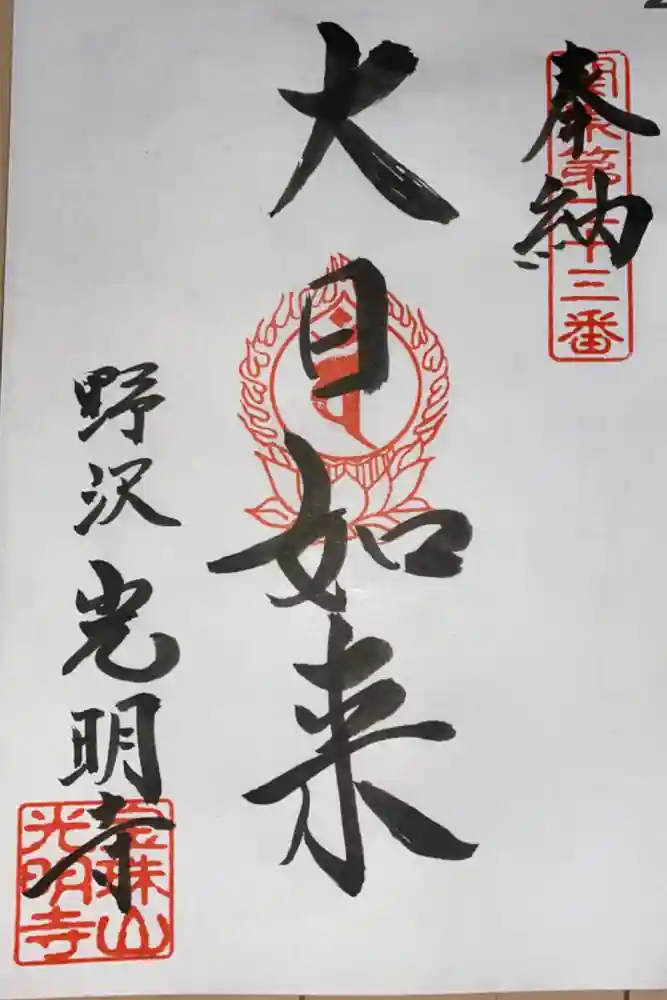 奉納
関東第七十三番
大日如来
野沢 光明寺
金珠山
光明寺